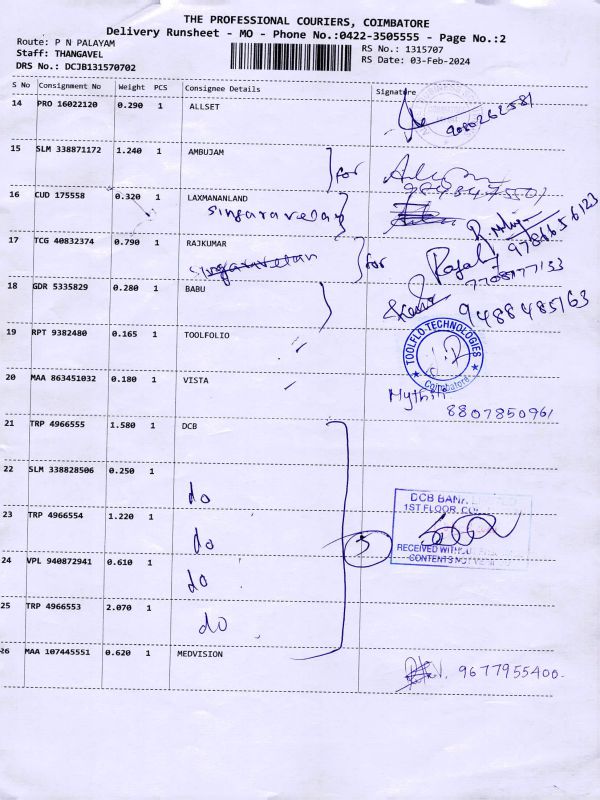 THE PROFESSIONAL COURIERS, COIMBATORE
Delivery Runsheet - MO - Phone No.:0422-3505555 - Page No.:2
Route: P N PALAYAM
Staff: THANGAVEL
DRS No.: DCJB131570702
RS No.: 1315707
RS Date: 03-Feb-2024
S No Consignment No Weight PCS Consignee Details Signature
14 PRO 16022120 0.290 1 ALLSET
9080262581
15 SLM 338871172 1.240 1 AMBUJAM
for
16 CUD 175558 0.320 1 LAXMANANLAND
Singaravelan
9786656123
17 TCG 40832374 0.790 1 RAJKUMAR
Singaravelan for
18 GDR 5335829 0.280 1 BABU
9488485163
19 RPT 9382480 0.165 1 TOOLFOLIO
TOOLFLO TECHNOLOGIES
Coimbatore
20 MAA 863451032 0.180 1 VISTA
Mythili
8807850961
21 TRP 4966555 1.580 1 DCB
22 SLM 338828506 0.250 1
do
DCB BANK
1ST FLOOR
23 TRP 4966554 1.220 1
do
5
RECEIVED
CONTENTS NOT
24 VPL 940872941 0.610 1
do
25 TRP 4966553 2.070 1
do
26 MAA 107445551 0.620 1 MEDVISION
9677955400.